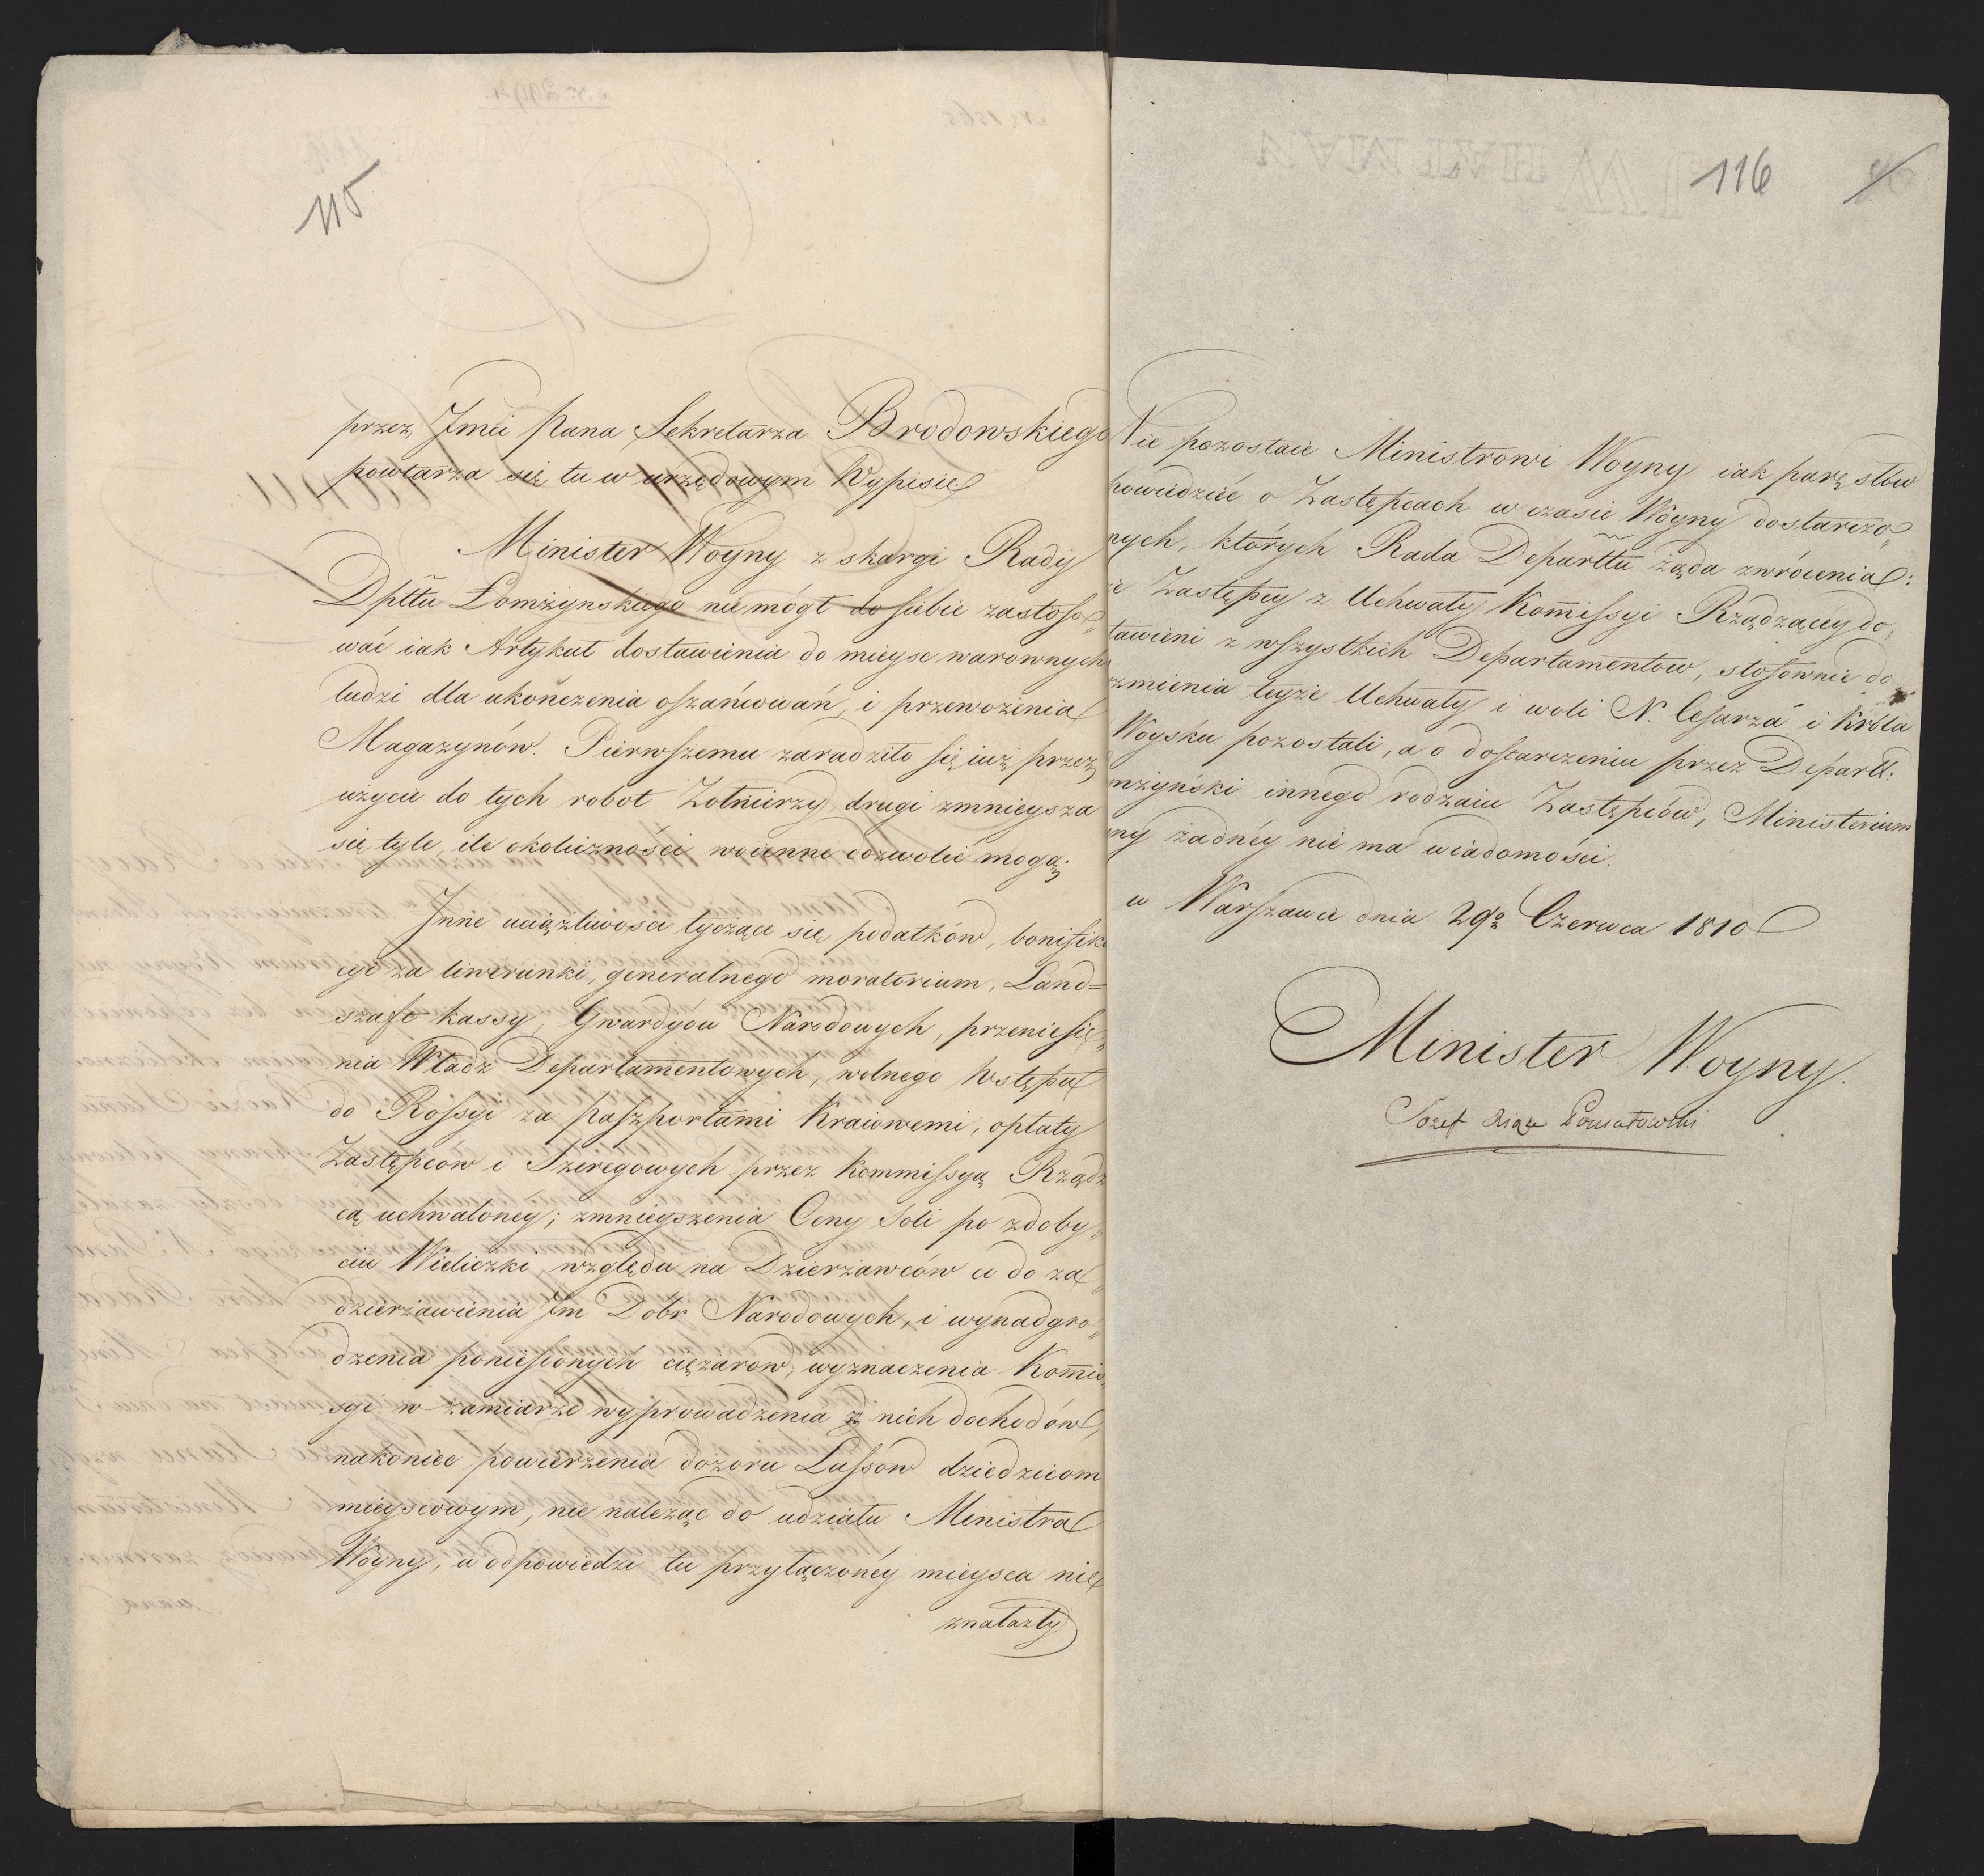 115
przez Jmci Pana Sekretarza Brodowskiego
powtarza się tu w urzędowym Wypisie
Minister Woyny z skargi Rady
Dpttu Łomżynskiego nie mógł do siebie zastoso„
wać iak Artykuł dostawienia do mieysc warownych
ludzi dla ukończenia oszańcowań, i przewożenia
Magazynów. Pierwszemu zaradziło się iuż przez
użycie do tych robot Żołnierzy, drugi zmnieysza
się tyle, ile okoliczności woienne dozwolić mogą;
Jnne uciążliwosci tyczące się podatków, bonifik
cyi za liwerunki, generalnego moratorium, Land=
szaft kassy, Gwardyow Narodowych, przeniesie„
nia Władz Departamentowych, wolnego Wstępu
do Rossyi za paszportami Kraiowemi, opłaty
Zastępców i Szeregowych przez Kommissyą Rządz
cą uchwalonéy; zmnieyszenia Ceny Soli po zdoby„
ciu Wieliczki, względu na Dzierżawców co do za„
dzierżawienia Jm Dobr Narodowych, i wynadgro„
dzenia poniesionych ciężarow, wyznaczenia Komis
syi w zamiarze wyprowadzenia z nich dochodów,
nakoniec powierzenia dozoru Lassów dziedzicom
mieyscowym, nie należąc do udziału Ministra
Woyny, w odpowiedzi tu przyłączonéy mieysca nie
znalazły
116
Nie pozostaie Ministrowi Woyny iak parę słów
powiedzieć o Zastępcach w czasie Woyny dostarczo„
nych, których Rada Departtu żąda zwrócenia:
że Zastępcy z Uchwały Komissyi Rządzącéy do„
tawieni z wszystkich Departamentow, stosownie do
rzmienia teyże Uchwały i woli N. Cesarza i Króla
Woysku pozostali, a o dostarczeniu przez Departt:
mżyński innego rodzaiu Zastępców, Ministerium
ny żadnéy nie ma wiadomości.
w Warszawie dnia 29o Czerwca 1810
Minister Woyny.
Jozef Xiąże Poniatowski